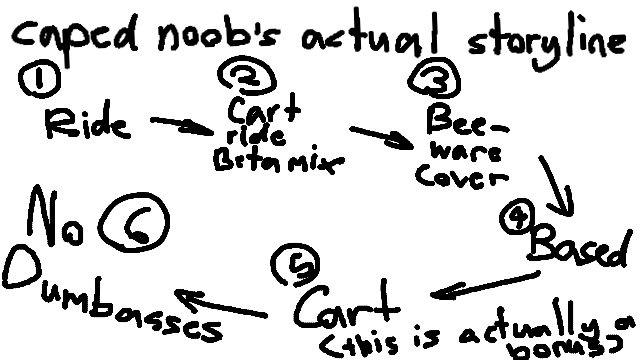 caped noob's actual storyline
1
Ride
2
Cart
ride
Betamix
3
Bee-
ware
cover
4
Based
5
Cart
(this is actually a
bonus)
No 6
Dumbasses